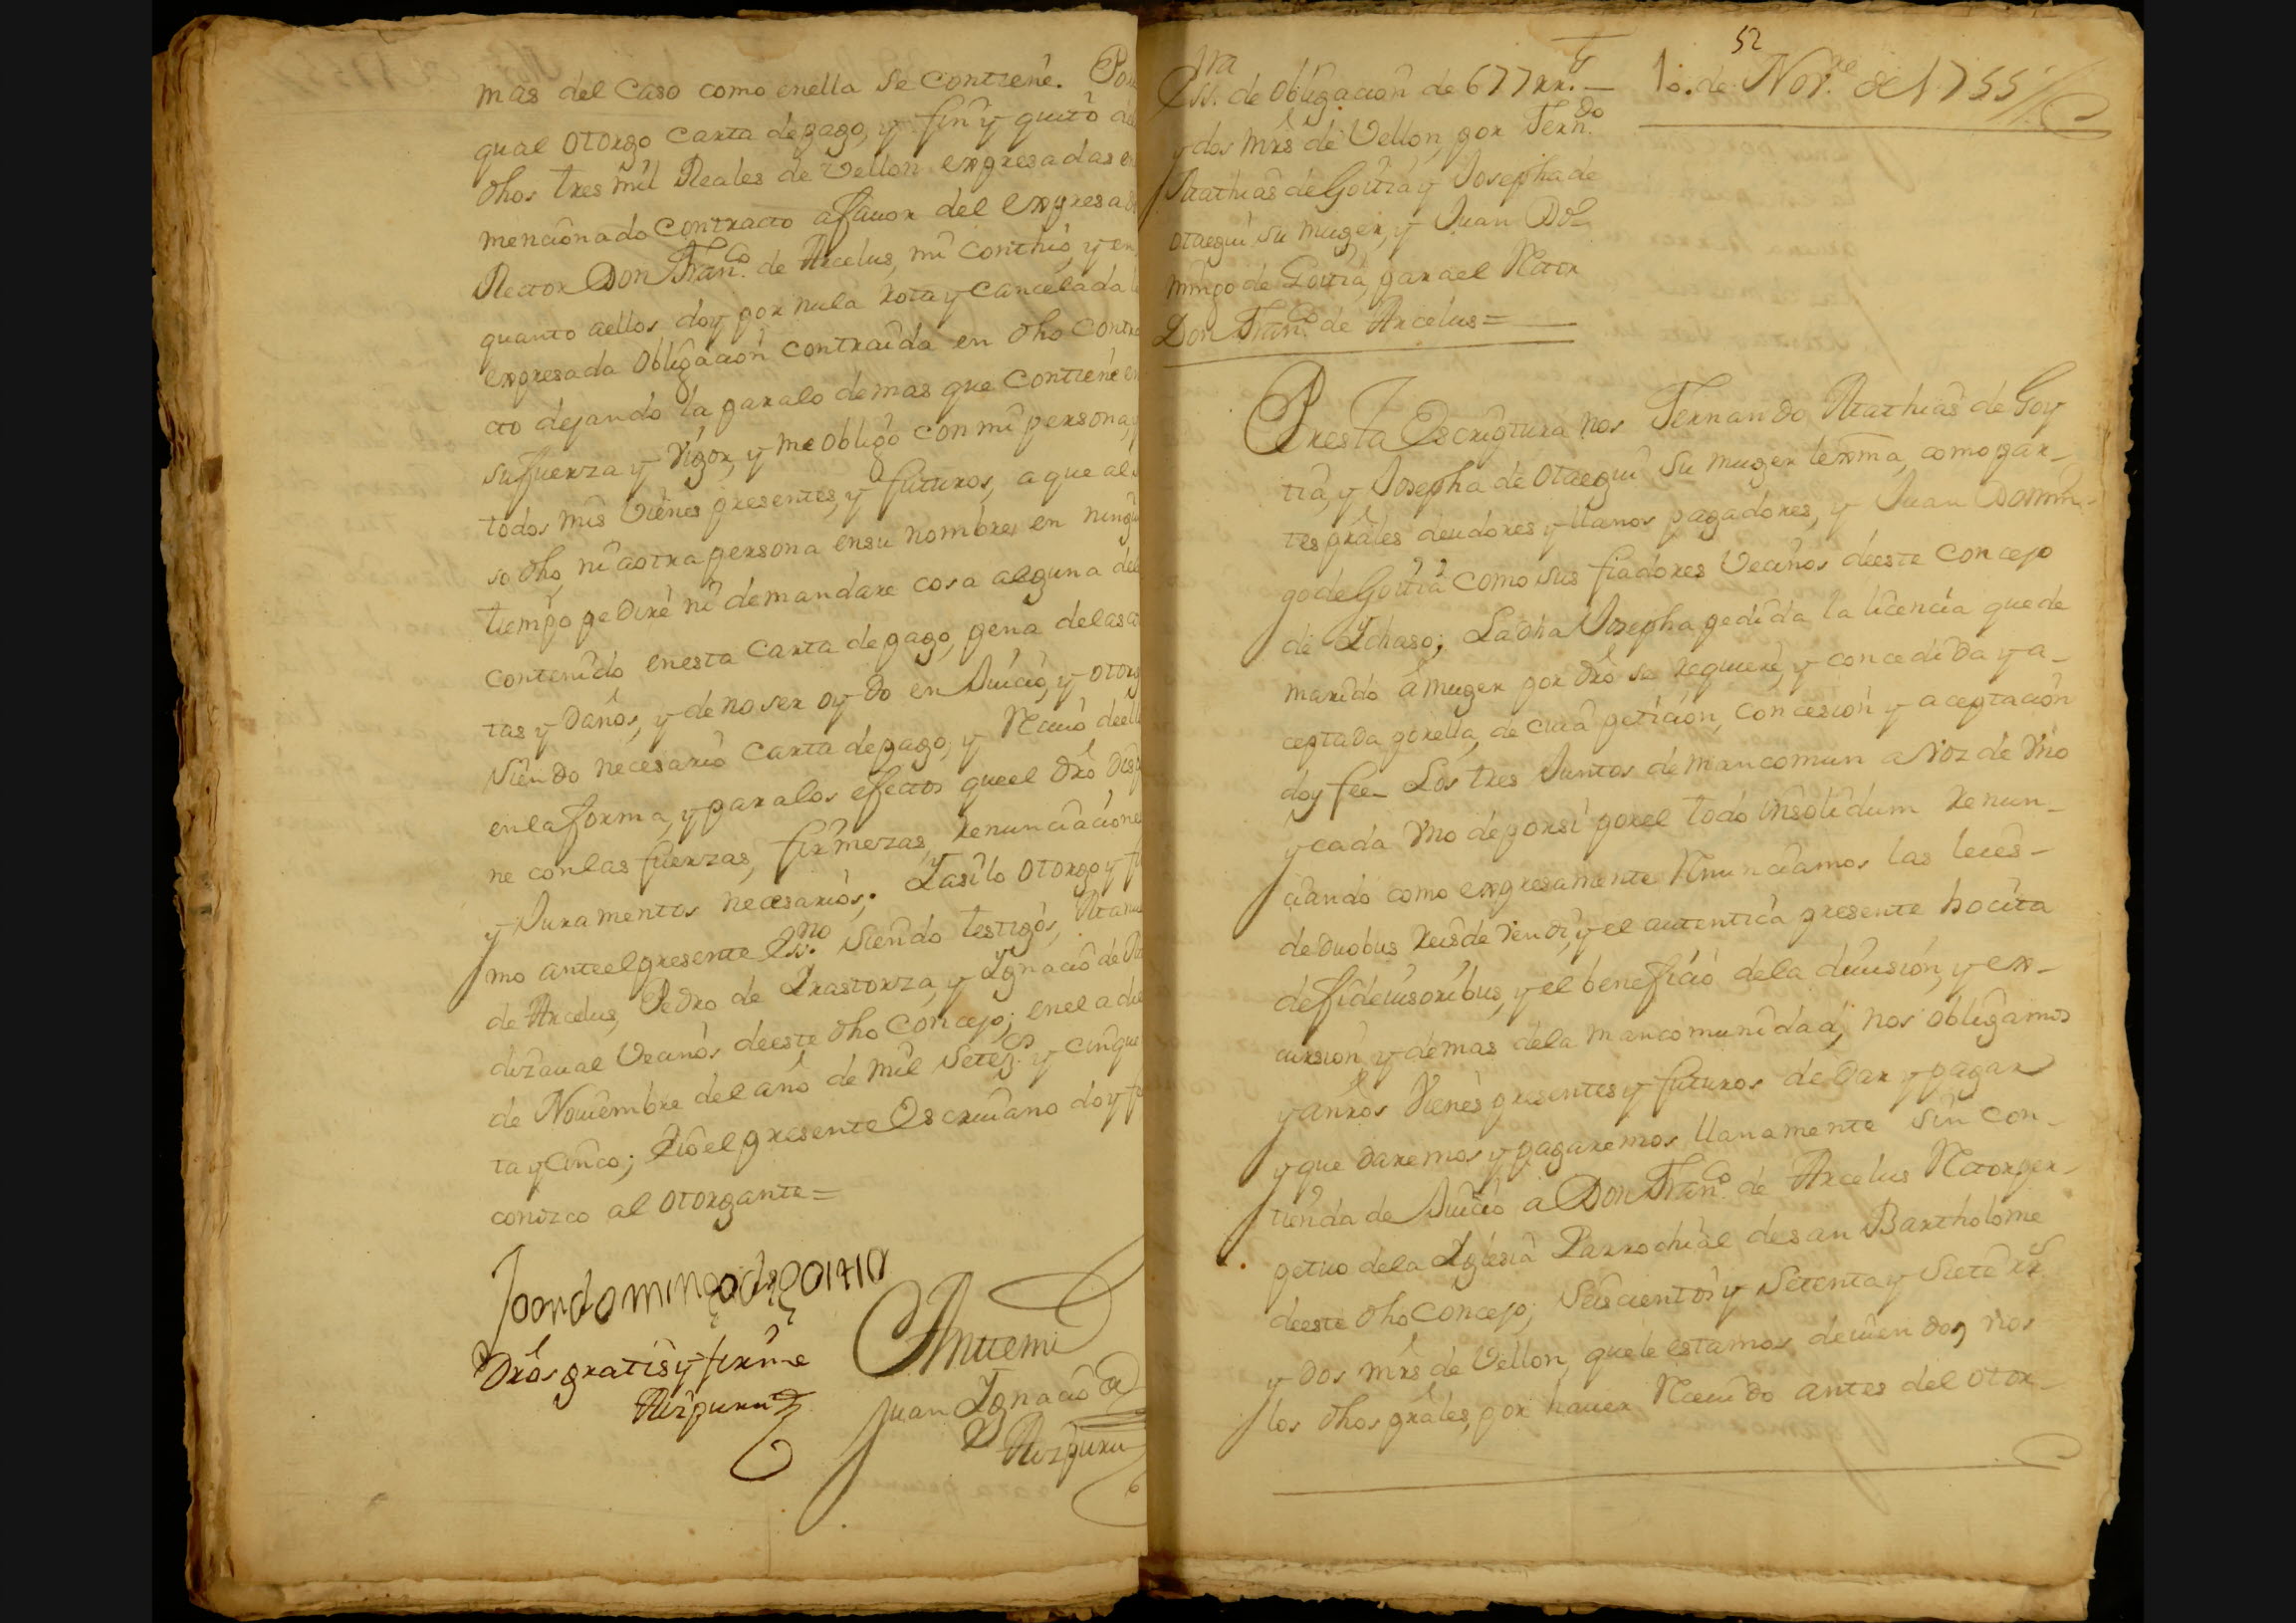 mas del Caso como enella se contiene. Po
qual otorgo carta depago, y fin y quito a
dhos tres mil Reales de Vellon expresadas e
mencionado contracto afauor del expresa
Rector Don Fran.co de Arcelus, mi conthio, y en
quanto aellos doy por nula rota y cancelada
expresada obligacion contraida en dho contra
cto dejando la paralo demas que contiene en
su fuerza y Vigor, y me obligo con mi persona, y
todos mis Vienes presentes, y futuros, a que al
so dho, ni aotra persona ensu nombre, en ning
tiempo pedire ni demandare cosa alguna del
contenido enesta Carta de pago, pena delas co
tas y daños, y de no ser oydo en Juicio, y otorg
siendo necesario Carta depago, y Reciuo deell
enla forma, y paralos efectos queel dro disp
ne conlas fuerzas, firmezas, renunciacione
y Juramentos necesarios; Yasilo otorgo y fi
mo anteel presente Ess.no siendo testigos,
de Arcelus, Pedro de Irastorza, y Ignacio de
duzaual Vecinos deeste dho Concejo; enel a die
de Nouiembre del año de mil setez.os y cinque
ta y Cinco; Eio el presente Escriuano doy fe
conozco al otorgante=
Joandomingodegoitia
Drôs gratis y firmé
Aizpuru
Antemi
Juan Ignacio de
Aizpuru
52
10. de Nov.re de 1755
Ess.ra de obligacion de 677 rr.s
y dos mrs de Vellon, por Fern.do
Mathias de Goitia y Josepha de
otaegui su muger, y Juan Do
mingo de Goitia, parael Retor
Don Fran.co de Arcelus=
Por esta Escriptura nos Fernando Mathias de Goy
tia, y Josepha de otaegui su muger lexma, como par-
tes prâles deudores y llanos pagadores, y Juan Domin-
go de Goitia como sus fiadores Vecinos deeste concejo
de Ichaso; Ladha Josepha pedida la licencia quede
marido â muger por drô se requiere, y concedida y a-
ceptada porella, de cuia peticion, concesion y aceptacion
doy fee Los tres Juntos de mancomun a Voz de Vno
y cada Vno de porsi porel todo insolidum renun-
ciando como expresamente Renunciamos las leies
de duobus reis de vendi, y el autentica presente hocita
de fideiusoribus, y el beneficio dela diuision, y ex-
cursion, y demas dela mancomunidad, nos obligamos
y anrôs Vienes presentes y futuros de dar y pagar
y que daremos y pagaremos llanamente sin con-
tienda de Juicio a Don Fran.co de Arcelus Retor per-
petuo dela Iglesia Parrochial de san Bartholome
deeste dho concejo, Seiscientos y Setenta y Siete rs
y dos mrs de Vellon, quele estamos deuiendo, nos
los dhos prâles, por hauer Reciuido antes del otor-